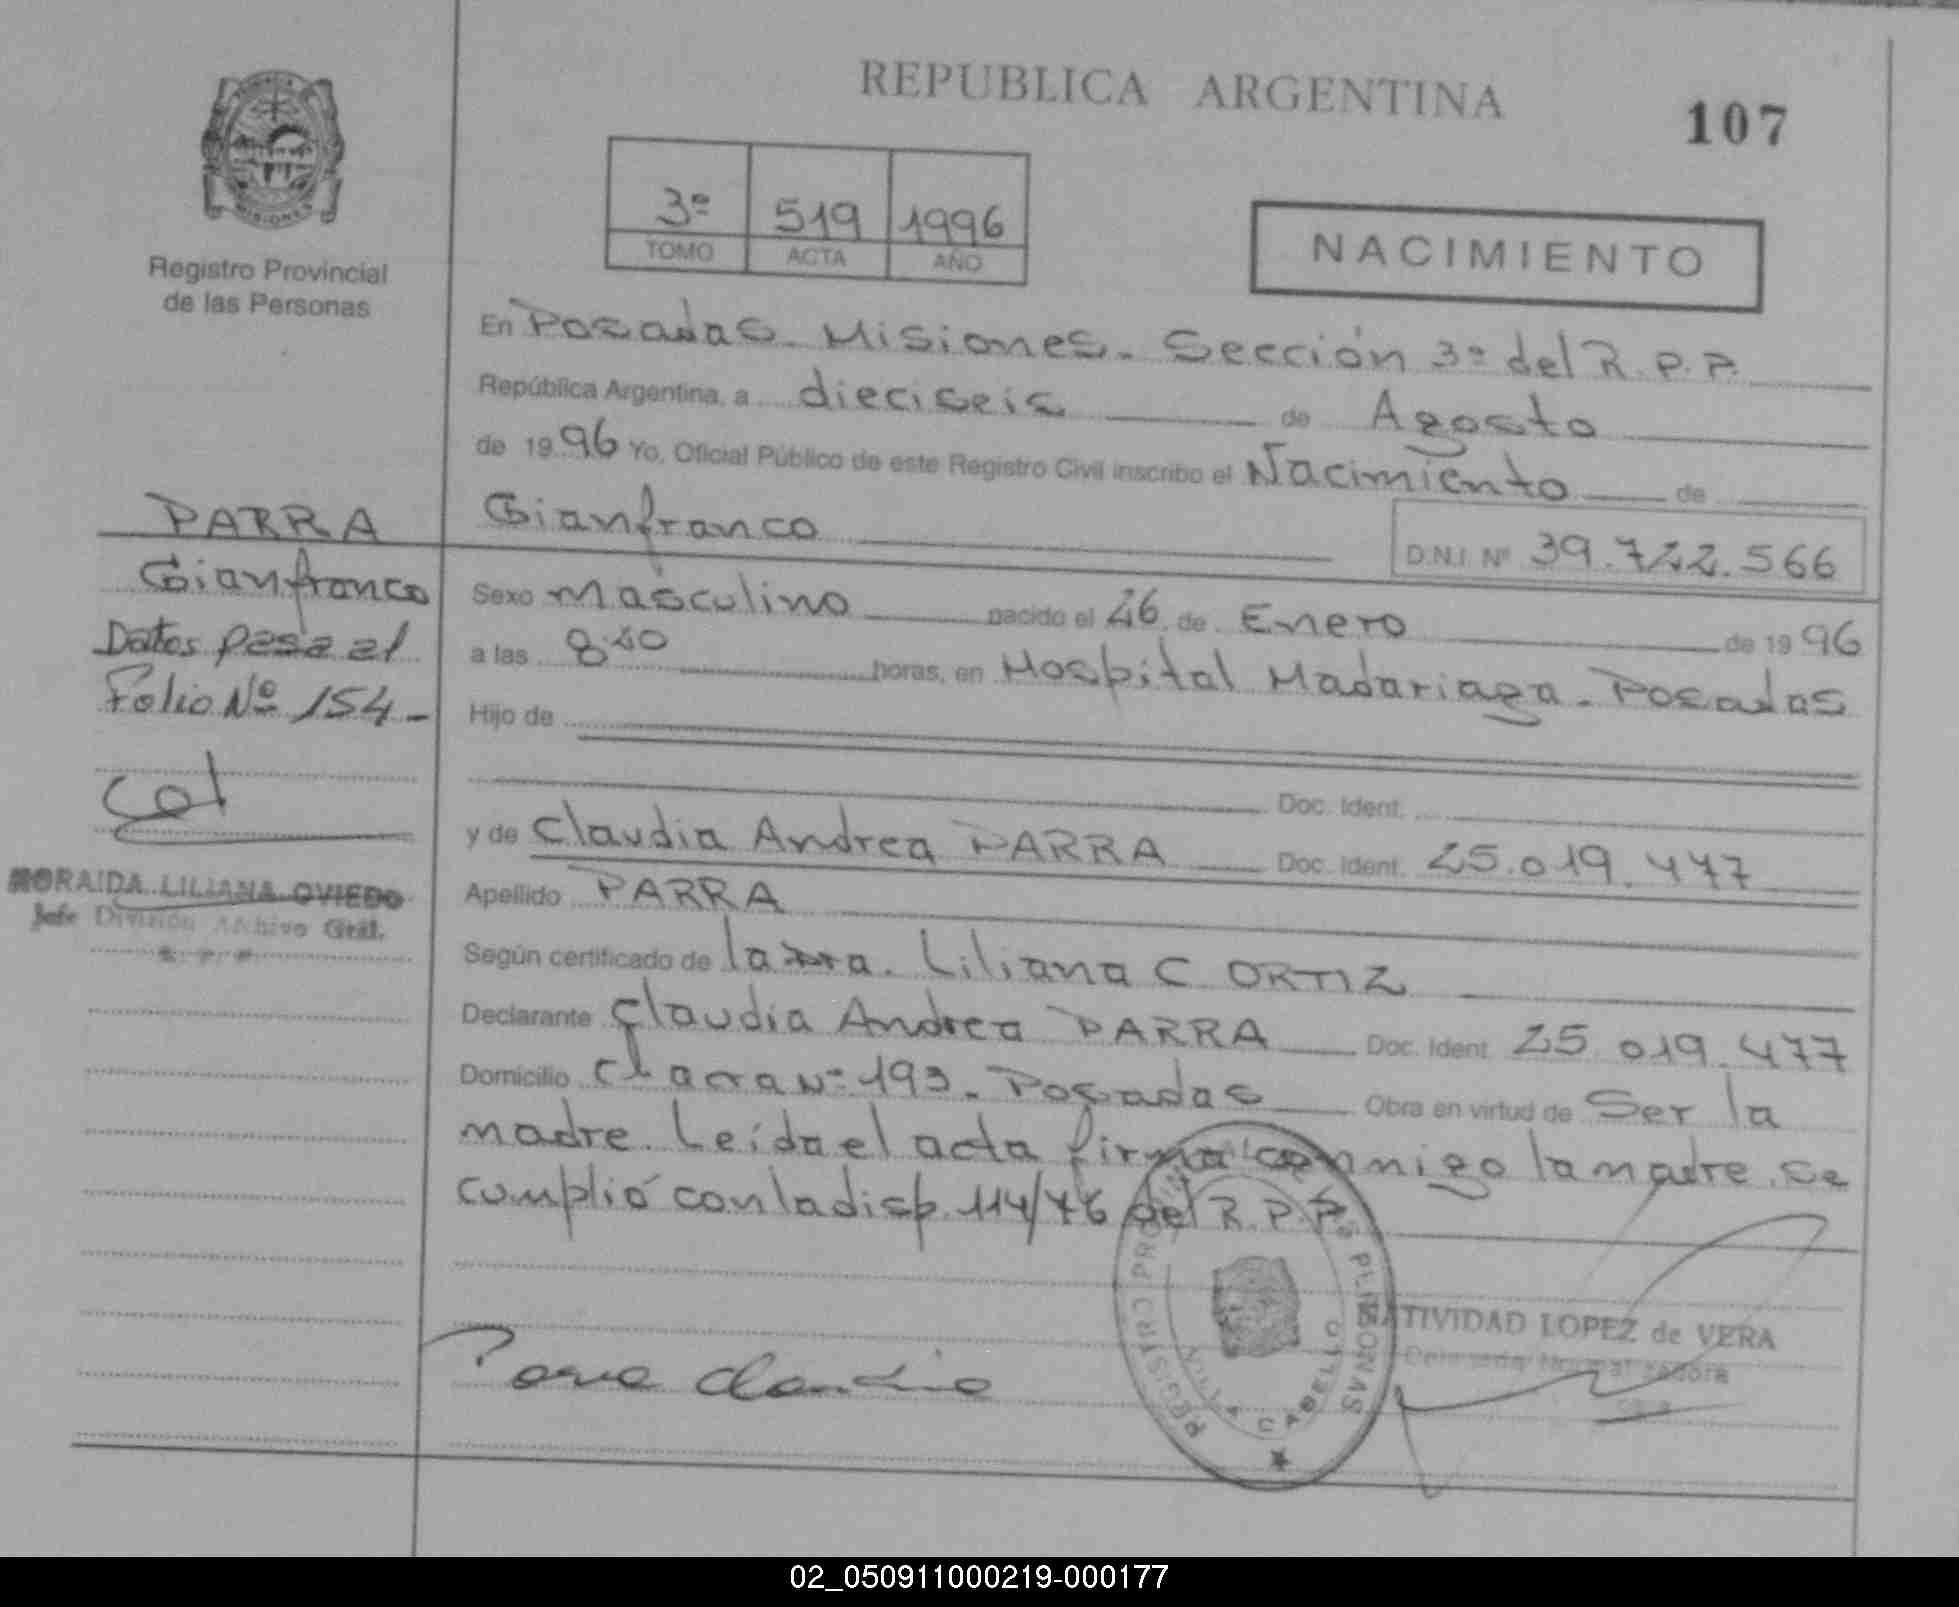 REPUBLICA ARGENTINA
107
3º 519 1996
TOMO ACTA AÑO
NACIMIENTO
MISIONES
Registro Provincial
de las Personas
En Posadas. Misiones. Sección 3º del R.P.P.
República Argentina, a dieciseis de Agosto
de 1996 Yo, Oficial Público de este Registro Civil inscribo el Nacimiento de
Gianfranco
D.N.I. Nº 39.722.566
Sexo masculino nacido el 26 de Enero de 1996
a las 8:40 horas, en Hospital Madariaga. Posadas
Hijo de
Doc. Ident.
y de Claudia Andrea PARRA Doc. Ident. 25.019.477
Apellido PARRA
Según certificado de la Dra. Liliana C ORTIZ
Declarante Claudia Andrea PARRA Doc. Ident 25.019.477
Domicilio Chacra Nº 193. Posadas Obra en virtud de Ser la
madre. Leída el acta firma conmigo la madre. se
cumplió con la disp. 114/76 del R.P.P.
PARRA
Gianfranco
Datos pasa al
Folio Nº 154-
NORAIDA LILIANA OVIEDO
Jefe División Archivo Gral.
R.P.P.
Parra Claudia
REGISTRO PROVINCIAL DE LAS PERSONAS
VILLA CABELLO
NATIVIDAD LOPEZ de VERA
Delegada Normalizadora
02_050911000219-000177